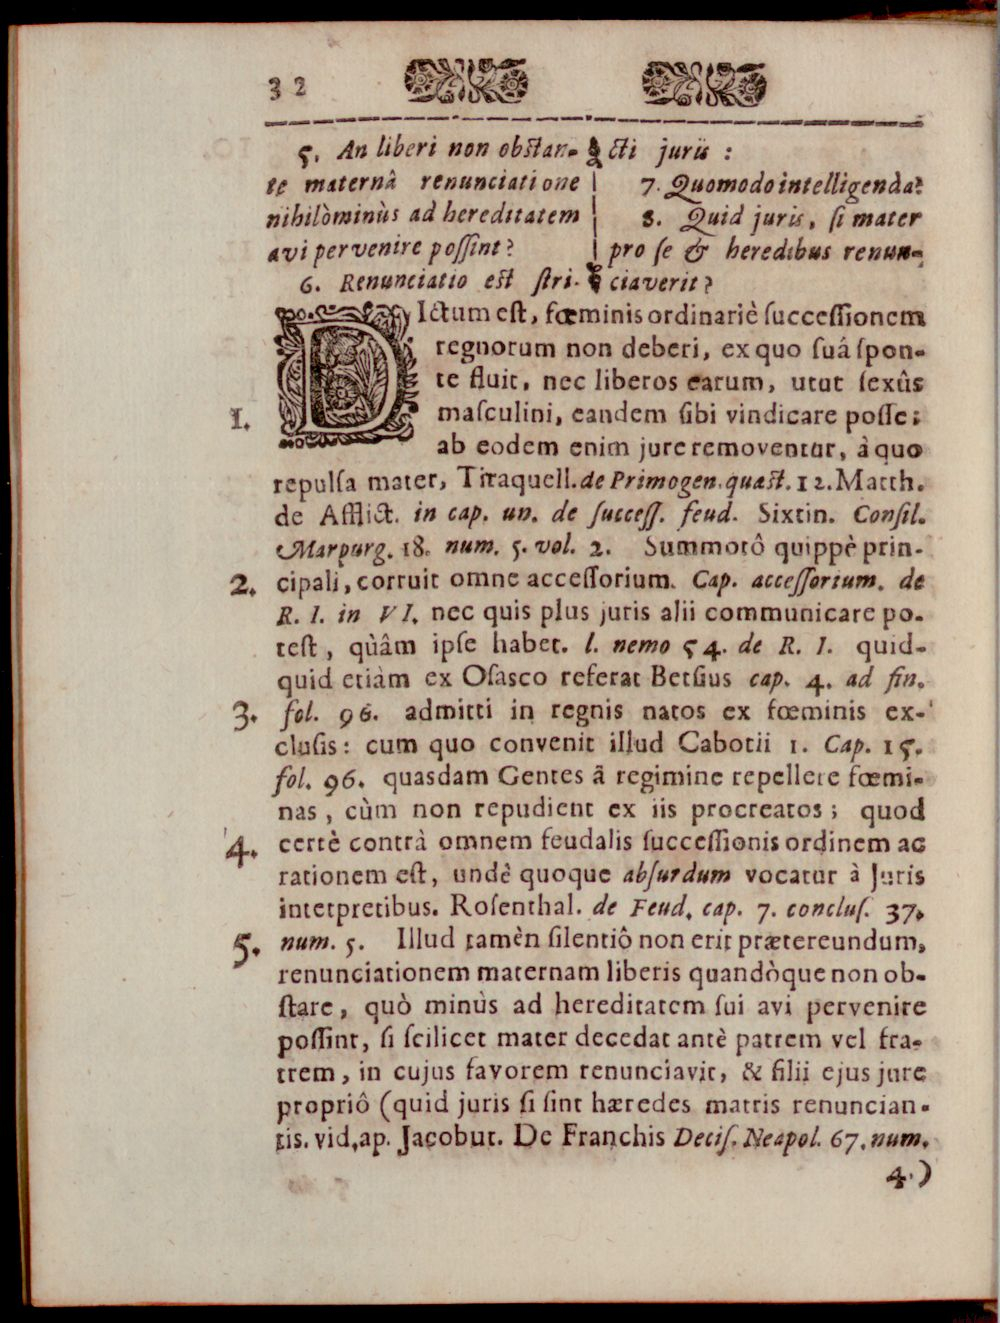 32
5. An liberi non obstan-
te maternâ renunciatione
nihilòminùs ad hereditatem
avi pervenire possint?
6. Renunciatio est stri-
cti juris :
7. Quomodo intelligenda?
8. Quid juris, si mater
pro se & heredibus renun-
ciaverit?
DIctum est, fœminis ordinariè successionem
regnorum non deberi, ex quo suâ spon-
te fluit, nec liberos earum, utut sexûs
1. masculini, eandem sibi vindicare posse;
ab eodem enim jure removentur, à quo
repulsa mater, Tiraquell. de Primogen. quæst. 12. Matth.
de Afflict. in cap. un. de success. feud. Sixtin. Consil.
Marpurg. 18. num. 5. vol. 2. Summotô quippè prin-
2. cipali, corruit omne accessorium. Cap. accessorium. de
R. I. in VI. nec quis plus juris alii communicare po-
test, qùâm ipse habet. l. nemo 54. de R. I. quid-
quid etiàm ex Osasco referat Betsius cap. 4. ad fin.
3. fol. 96. admitti in regnis natos ex fœminis ex-
clusis: cum quo convenit illud Cabotii 1. Cap. 15.
fol. 96. quasdam Gentes â regimine repellere fœmi-
nas, cùm non repudient ex iis procreatos; quod
4. certè contrà omnem feudalis successionis ordinem ac
rationem est, undè quoque absurdum vocatur à Juris
interpretibus. Rosenthal. de Feud. cap. 7. conclus. 37.
5. num. 5. Illud tamèn silentiô non erit prætereundum,
renunciationem maternam liberis quandòque non ob-
stare, quò minùs ad hereditatem sui avi pervenire
possint, si scilicet mater decedat antè patrem vel fra-
trem, in cujus favorem renunciavit, & filii ejus jure
propriô (quid juris si sint hæredes matris renuncian-
tis. vid. ap. Jacobut. De Franchis Decis. Neapol. 67. num.
4.)